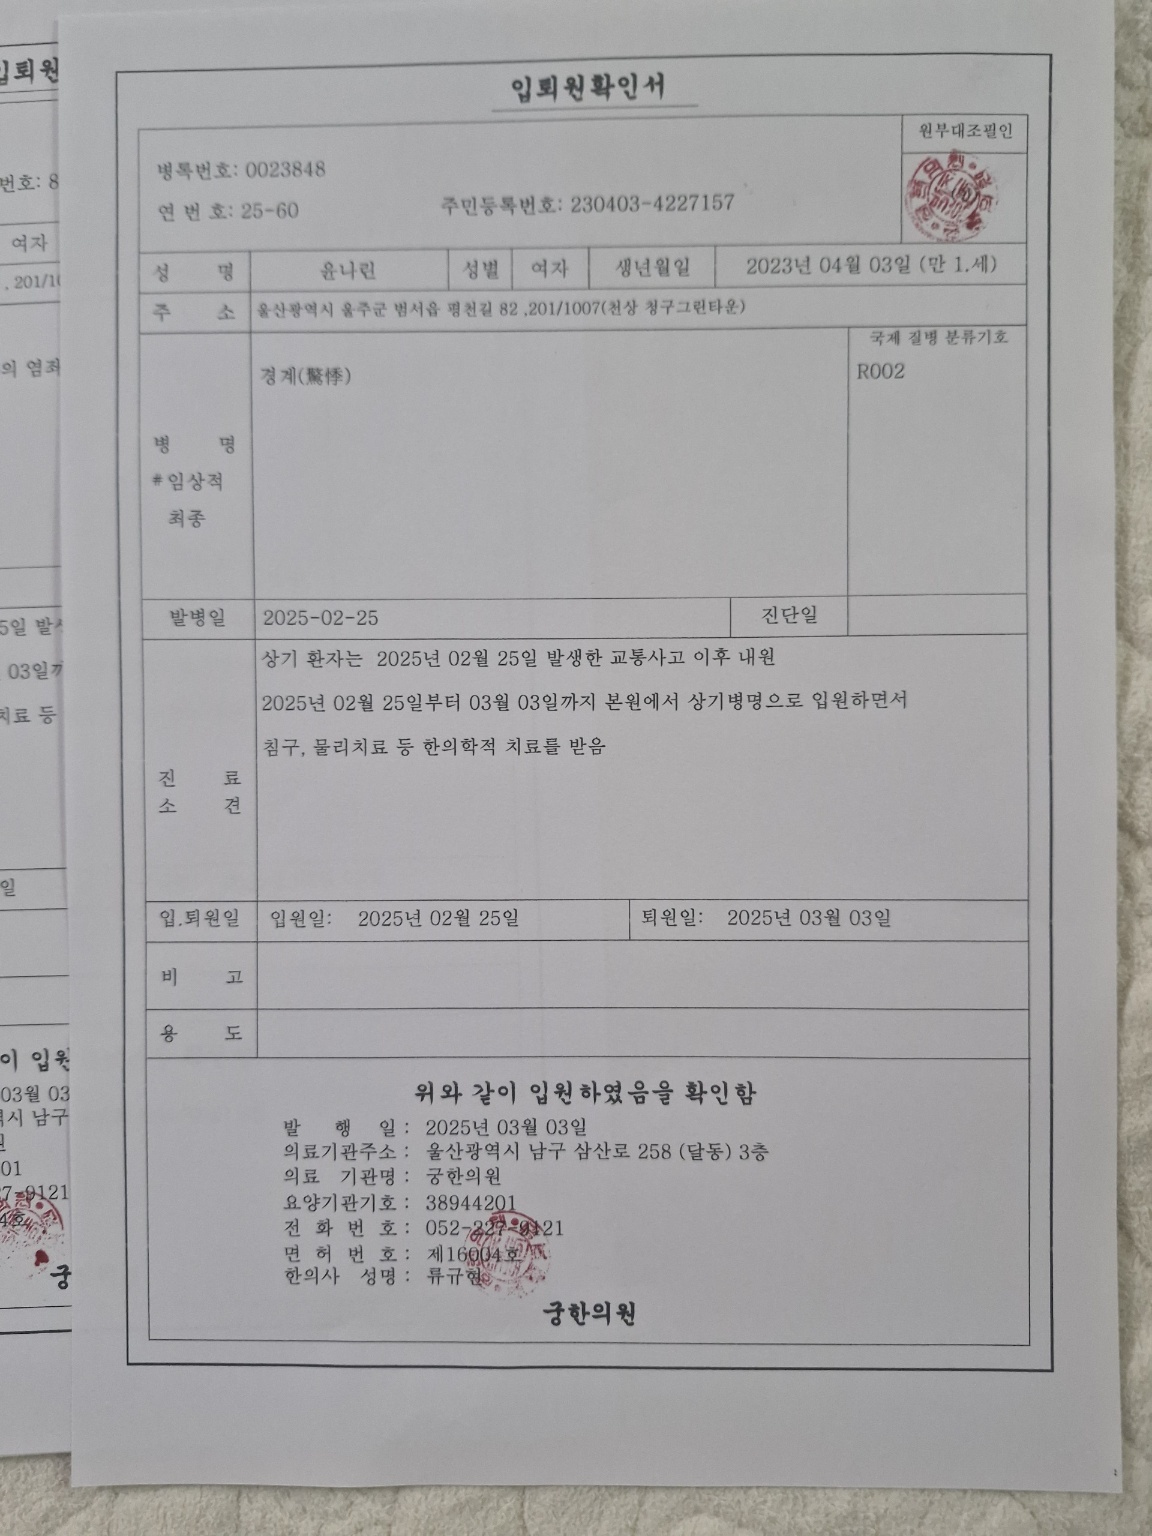 입퇴원확인서
원부대조필인
병록번호: 0023848
연 번 호: 25-60 주민등록번호: 230403-4227157
성 명 윤나린 성별 여자 생년월일 2023년 04월 03일 (만 1.세)
주 소 울산광역시 울주군 범서읍 평천길 82 ,201/1007(천상 청구그린타운)
국제 질병 분류기호
경계(驚悸) R002
병 명
#임상적
최종
발병일 2025-02-25 진단일
상기 환자는 2025년 02월 25일 발생한 교통사고 이후 내원
2025년 02월 25일부터 03월 03일까지 본원에서 상기병명으로 입원하면서
침구, 물리치료 등 한의학적 치료를 받음
진 료
소 견
입.퇴원일 입원일: 2025년 02월 25일 퇴원일: 2025년 03월 03일
비 고
용 도
위와 같이 입원하였음을 확인함
발 행 일 : 2025년 03월 03일
의료기관주소 : 울산광역시 남구 삼산로 258 (달동) 3층
의료 기관명 : 궁한의원
요양기관기호 : 38944201
전 화 번 호 : 052-227-9121
면 허 번 호 : 제16004호
한의사 성명 : 류규현
궁한의원
입퇴원
번호: 8
여자
, 201/10
의 염좌
5일 발
03일
치료 등
일
이 입원
03월 03
시 남구
01
27-9121
4호
궁